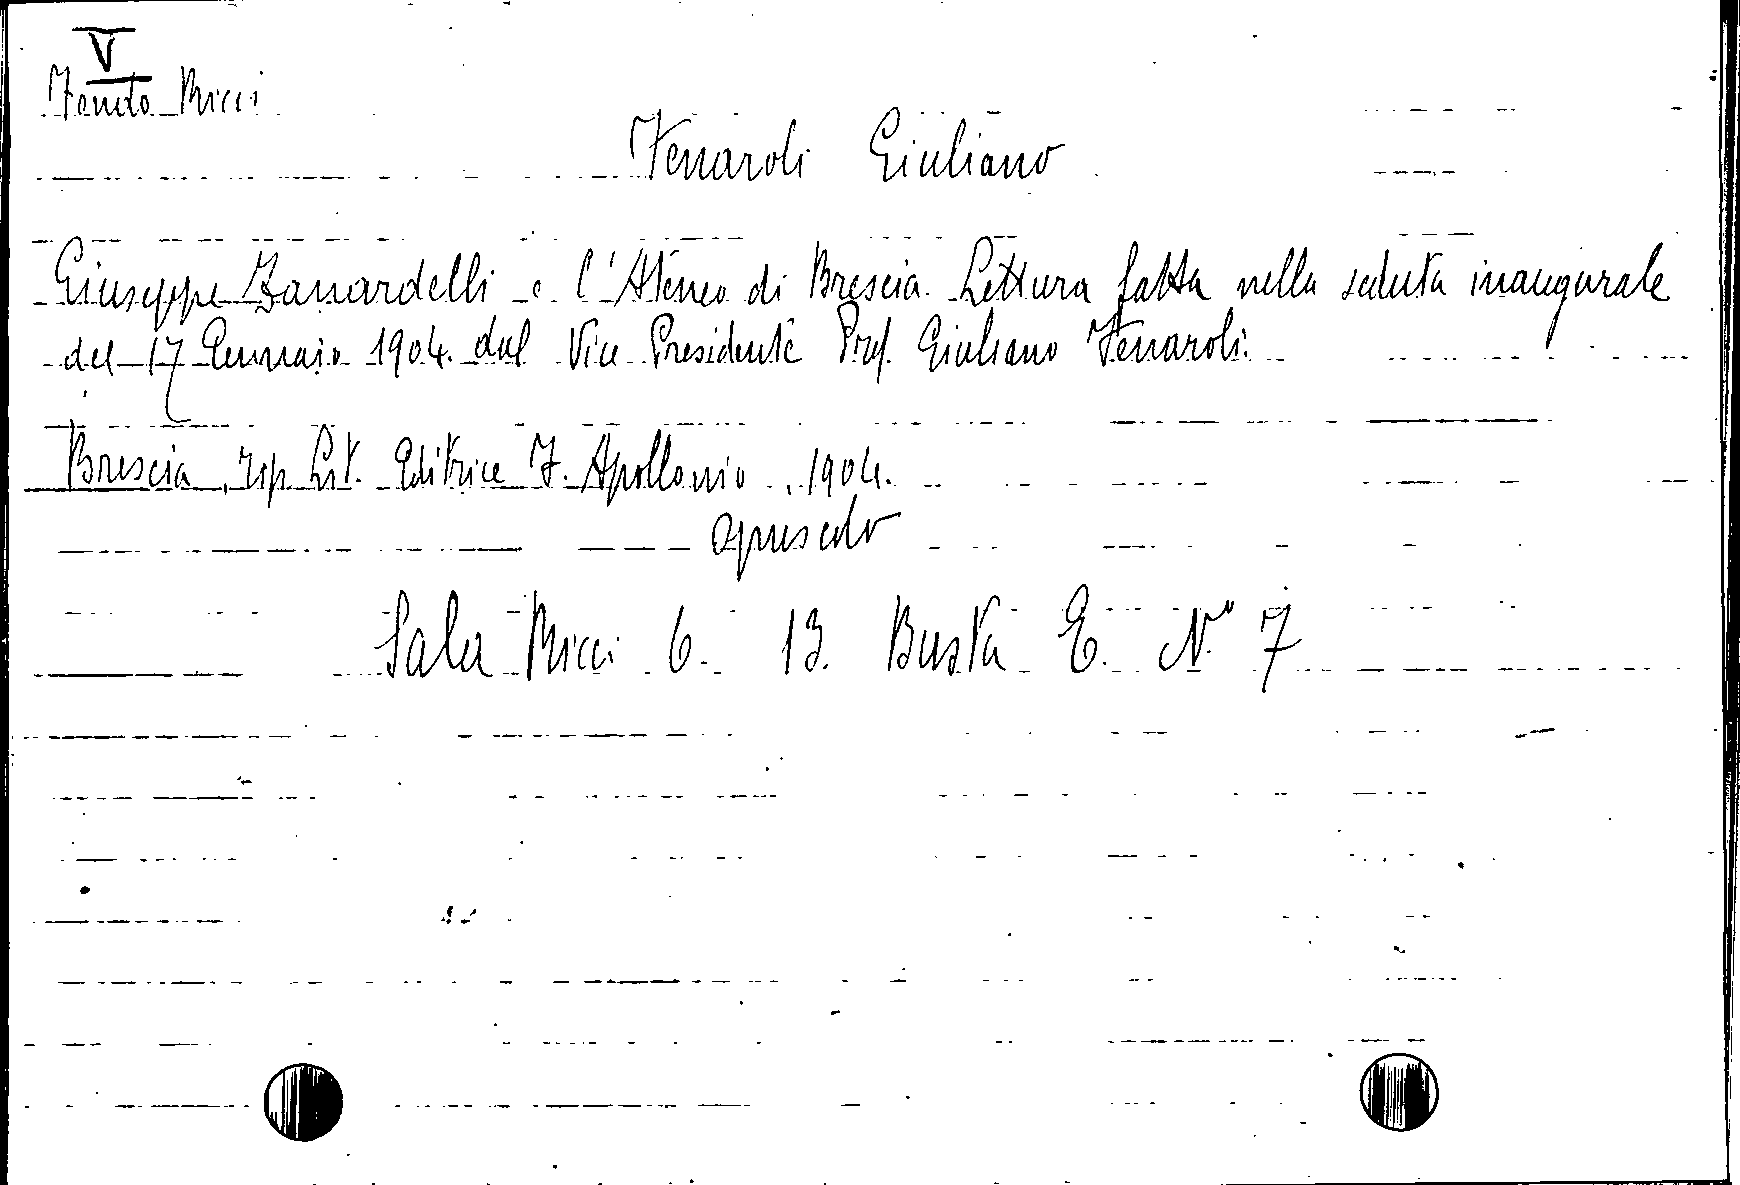 V
Fondo Ricci
Fenaroli Giuliano
Giuseppe Zanardelli e l'Ateneo di Brescia. Lettura fatta nella seduta inaugurale
del 17 Gennaio 1904. dal Vice Presidente Prof. Giuliano Fenaroli.
Brescia, Tip. Lit. Editrice F. Apollonio, 1904.
opuscolo
Sala Ricci 6. 13. Busta E. N.° 7